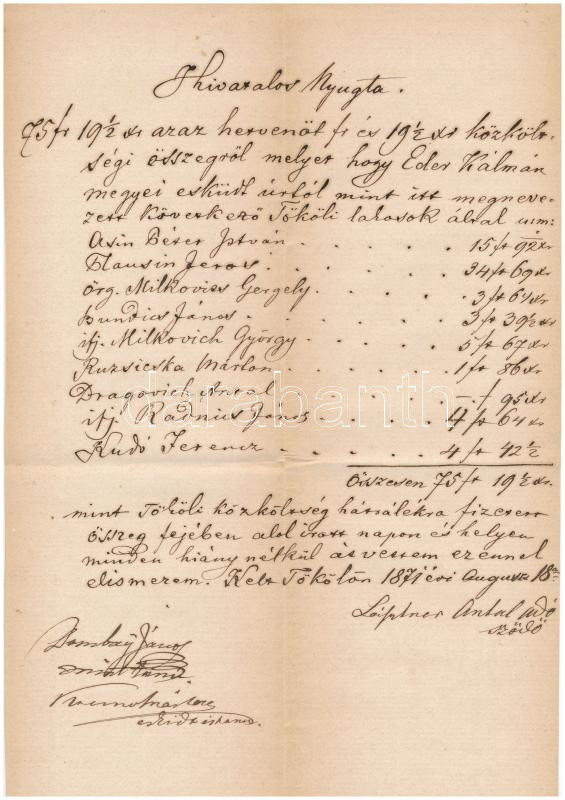 Hivatalos Nyugta.
75 fr 19 1/2 xr azaz hetvenöt fr és 19 1/2 xr közkölt-
ségi összegről melyet hogy Eder Kálmán
megyei esküdt úrtól mint itt megneve-
zett Következő Tököli lakosok által u.m:
Asin Péter István . . . . 15 fr 92 xr
Jeros . . . . 34 fr 69 xr
örg. Milkovics Gergely . . . . 3 fr 64 xr
János . . . . 3 fr 39 1/2 xr
ifj. Milkovich György . . . . 5 fr 67 xr
Ruzsicska Márton . . . . 1 fr 86 xr
Dragovich Antal . . . . 95 xr
ifj. Radnics János . . . . 4 fr 64 xr
Kudó Ferencz . . . . 4 fr 42 1/2
összesen 75 fr 19 1/2 xr.
mint Tököli közköltség hátrálékra fizetett
összeg fejében alol irott napon és helyen
minden hiány nélkül átvettem ezennel
elismerem. Kelt Tökölön 1871 évi Augusz 18án
Antal adó
szödő
Dombay János
darabanth